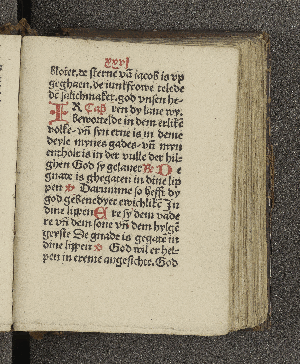 xxvi
kloket. de sterne vñ jacob is vp
geghaen. de iunkfrowe telede
dē salichmaker. god vnsen he-
IR Cap̄ ren dy laue wy.
bewortelde in dem erlikē
volke. vñ syn erue is in deme
deyle mynes gades. vñ myn
entholt is in der vulle der hil-
ghen God sy gelauet De
gnade is ghegaten in dine lip
pen Darumme so hefft dy
god gebenedyet ewichlikē In
dine lippen Ere sy dem vade
re vñ dem sone vñ dem hylgē
geyste De gnade is gegatē in
dine lippen God wil er hel-
pen in ereme angesichte. God